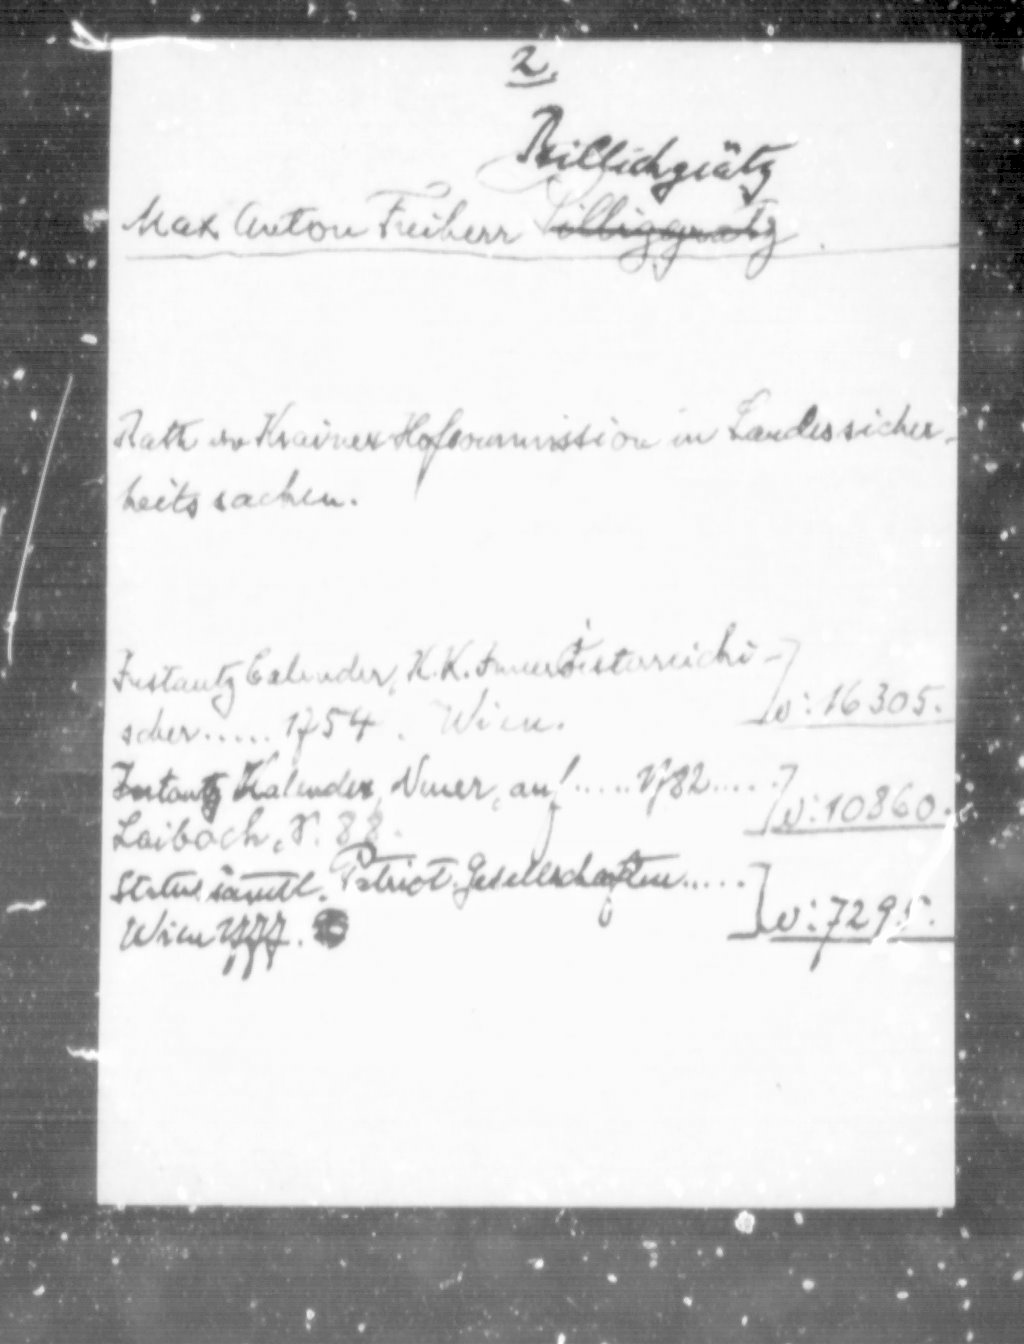 2.
Billichgrätz
Max Anton Freiherr Billiggratz
Rath der Krainer Hofcommission in Landessicher-
heitssachen.
Instantz Calender, K.K. Inner Österreichi-
scher..... 1754. Wien. v: 16305.
Instantz Kalender, Neuer, auf ..... 1782..... v: 10860.
Laibach, S. 88.
Status sämtl. Patriot. Gesellschaften.....
Wien 1777. v: 7295.